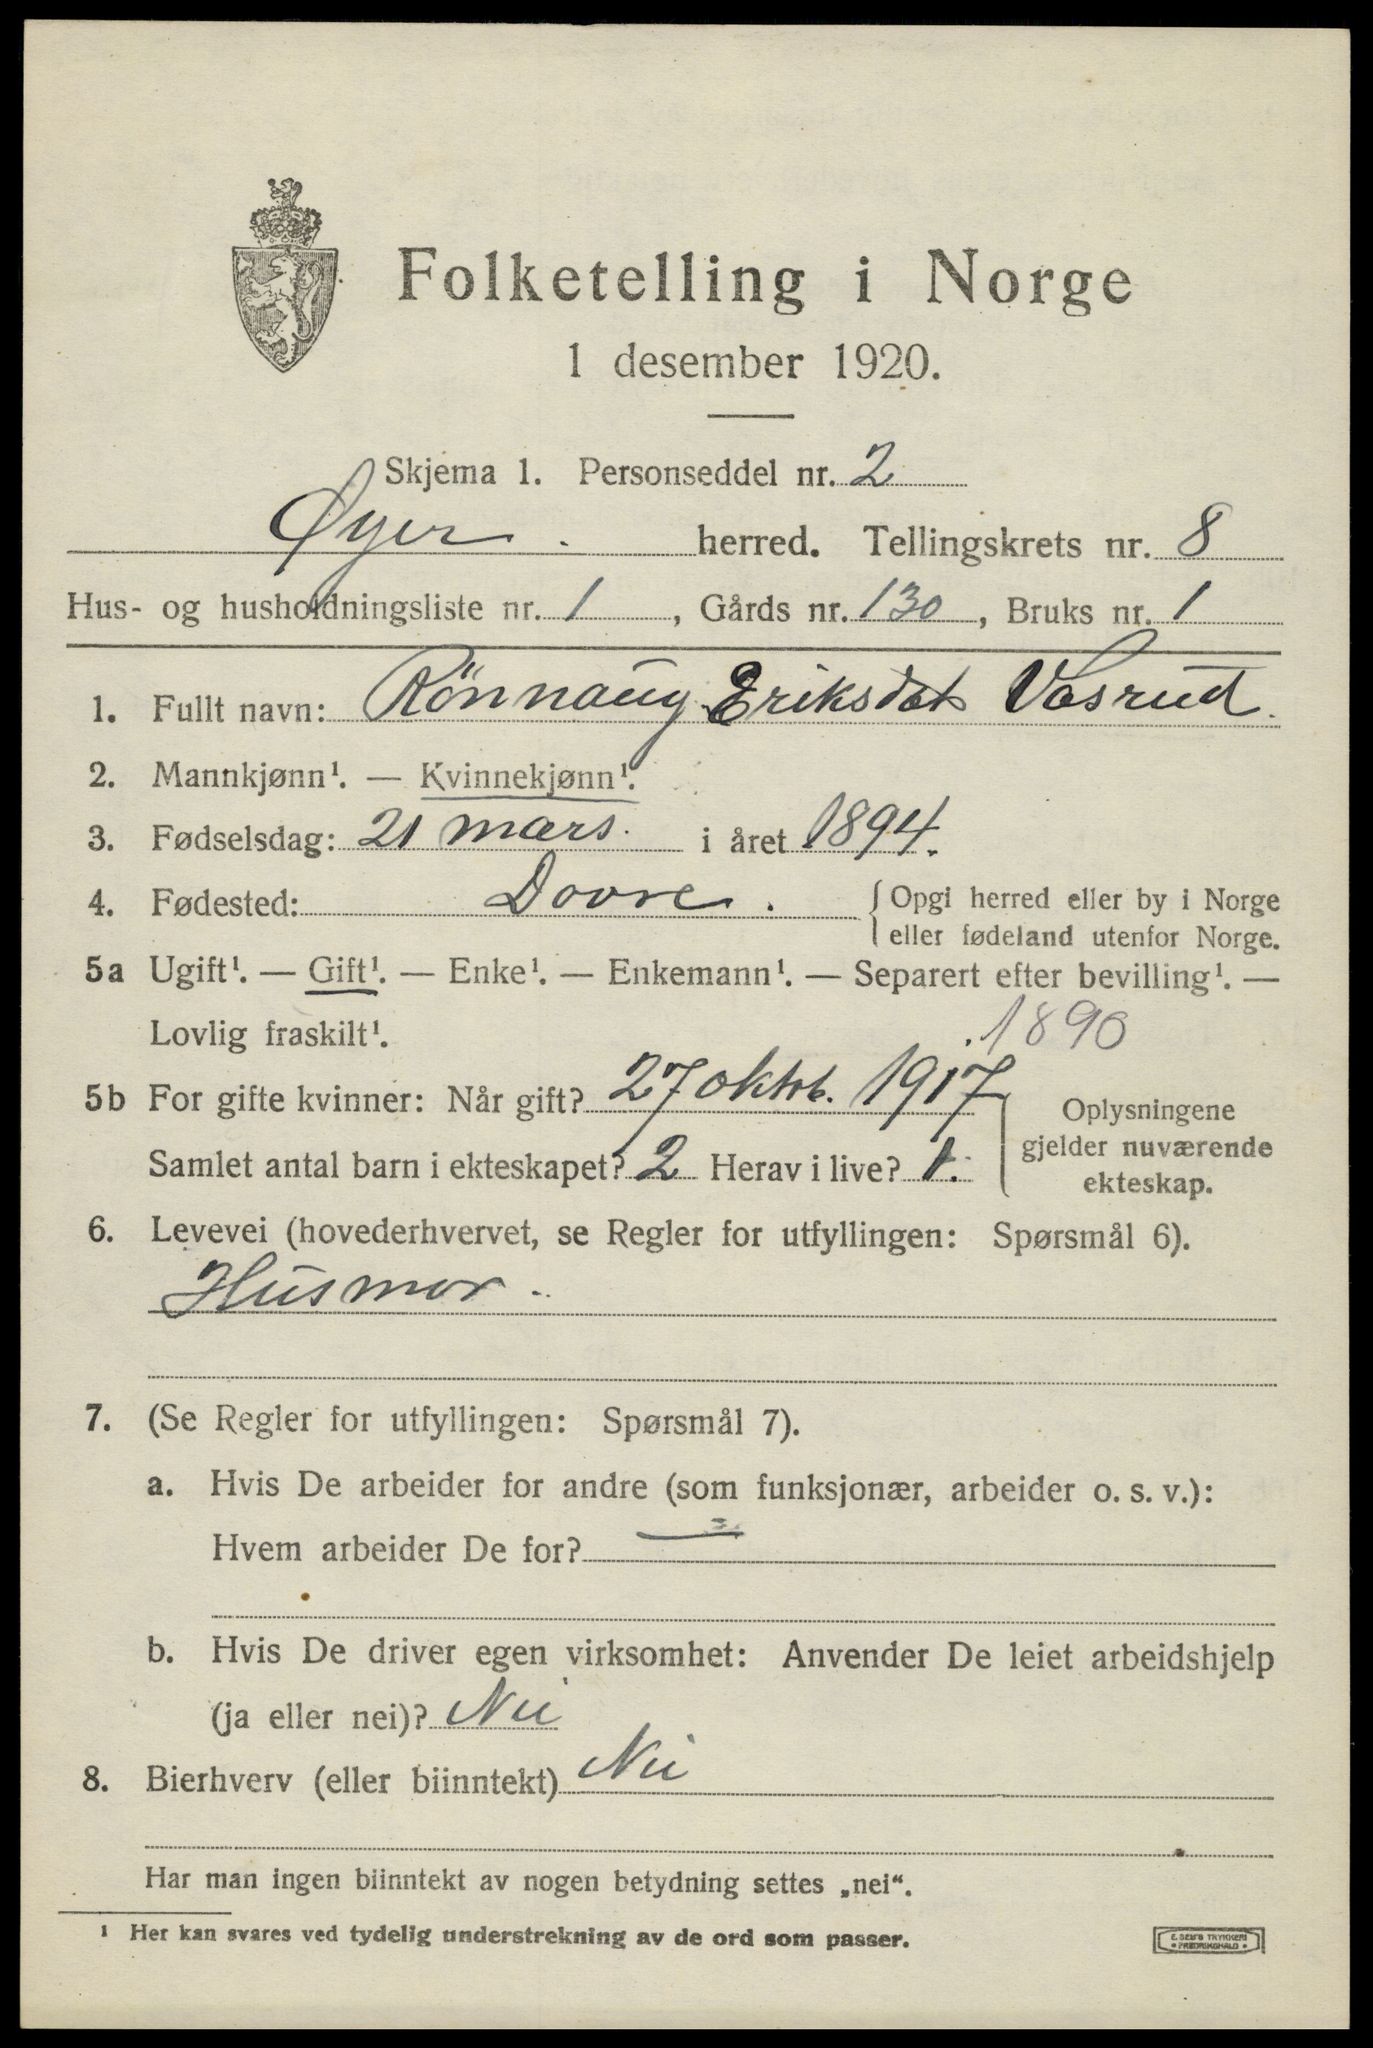 Folketelling i Norge
1 desember 1920.
Skjema 1. Personseddel nr. 2
Øyer. herred. Tellingskrets nr. 8
Hus- og husholdningsliste nr. 1, Gårds nr. 130, Bruks nr. 1
1. Fullt navn: Rönnaug Eriksdat Vasrud.
2. Mannkjønn¹. — Kvinnekjønn¹.
3. Fødselsdag: 21 mars. i året 1894.
4. Fødested: Dovre. { Opgi herred eller by i Norge
eller fødeland utenfor Norge.
5a Ugift¹. — Gift¹. — Enke¹. — Enkemann¹. — Separert efter bevilling¹. —
Lovlig fraskilt¹. 1890
5b For gifte kvinner: Når gift? 27 oktob. 1917
Samlet antal barn i ekteskapet? 2 Herav i live? 1.
Oplysningene
gjelder nuværende
ekteskap.
6. Levevei (hovederhvervet, se Regler for utfyllingen: Spørsmål 6).
Husmor.
7. (Se Regler for utfyllingen: Spørsmål 7).
a. Hvis De arbeider for andre (som funksjonær, arbeider o. s. v.):
Hvem arbeider De for? —
b. Hvis De driver egen virksomhet: Anvender De leiet arbeidshjelp
(ja eller nei)? Nei
8. Bierhverv (eller biinntekt) Nei
Har man ingen biinntekt av nogen betydning settes „nei“.
¹ Her kan svares ved tydelig understrekning av de ord som passer.
E. SEM'S TRYKKERI
• FREDRIKSHALD •